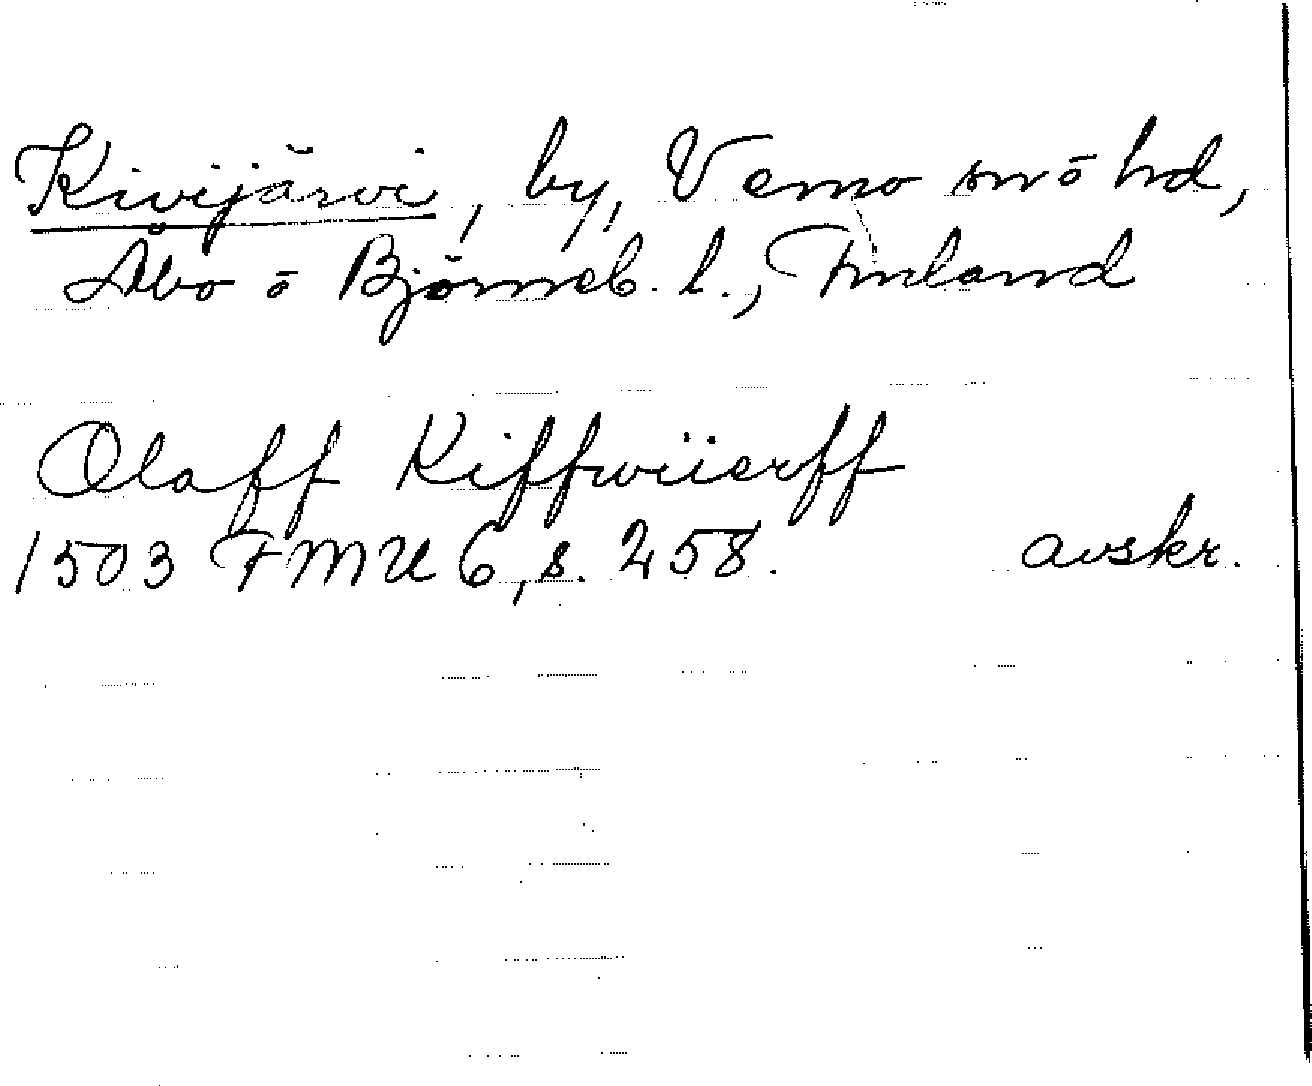 Kivijärvi, by, Vemo sn o hd,
Åbo o Björneb. l., Finland
Olaff Kiffwiierff
1503 FMU 6, s. 258. avskr.